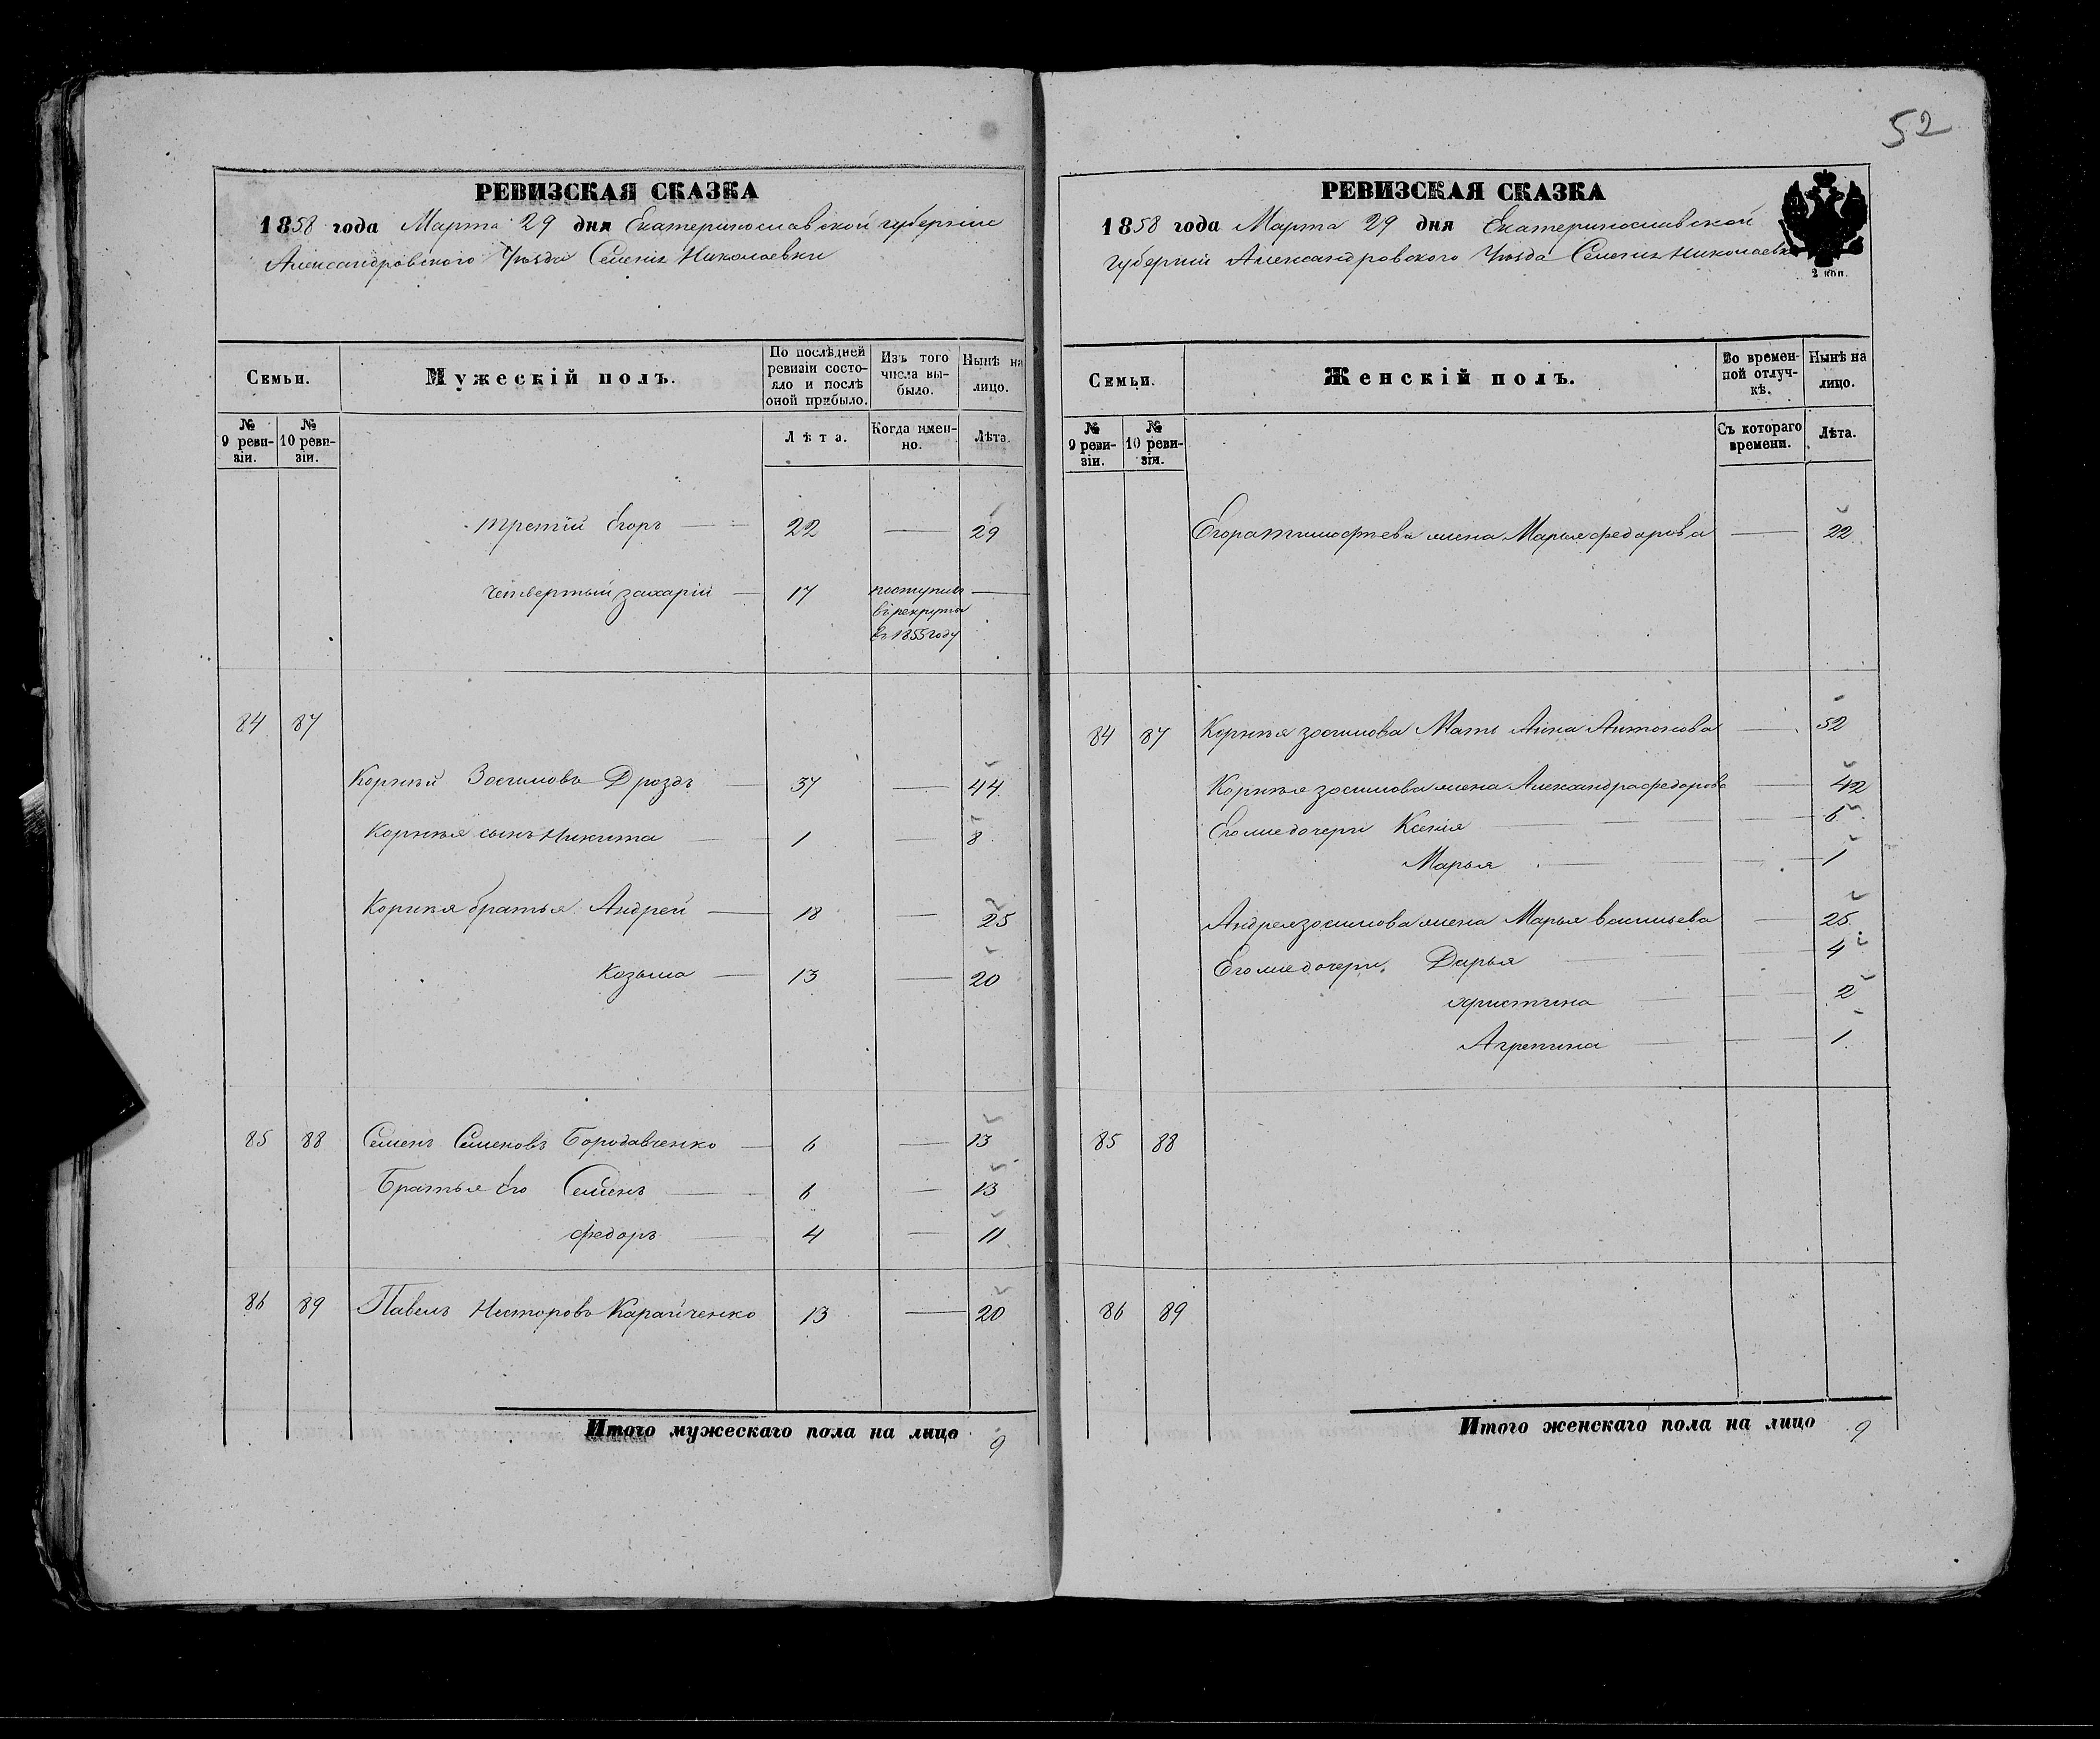 52
РЕВИЗСКАЯ СКАЗКА
1858 года Марта 29 дня Екатеринославской губернии
Александровского Уѣзда Селенiя Николаевки
Семьи.
Мужескій полъ.
По послѣдней ревизіи состояло и послѣ оной прибыло.
Изъ того числа выбыло.
Нынѣ на лицо.
№ 9 ревизіи.
№ 10 ревизіи.
Лѣта.
Когда именно.
Лѣта.
третій Егоръ 22 29
четвертый захарій 17 поступилъ
въ рекруты
въ 1855 году
84 87
Корнѣй Зосимовъ Дроздъ 37 44
Корнѣя сынъ Никита 1 8
Корнѣя братья Андрей 18 25
Козьма 13 20
85 88 Семенъ Семеновъ Бородавченко 6 13
Братья Его Семенъ 6 13
федоръ 4 11
86 89 Павелъ Несторовъ Карайченко 13 20
Итого мужескаго пола на лицо 9
РЕВИЗСКАЯ СКАЗКА
1858 года Марта 29 дня Екатеринославской
губерніи Александровского Уѣзда Селенiя Николаевки
2 коп.
Семьи.
Женскій полъ.
Во временной отлучкѣ.
Нынѣ на лицо.
№ 9 ревизіи.
№ 10 ревизіи.
Съ котораго времени.
Лѣта.
Егора тимофѣева жена Марья федорова 22
84 87 Корнѣя зосимова Мать Анна Антонова 52
Корнѣя зосимова жена Александра федорова 42
Его же дочери Ксенія 6
Марья 1
Андрея зосимова жена Марья васильева 25
Его же дочери Дарья 4
христина 2
Агрепина 1
85 88
86 89
Итого женскаго пола на лицо 9